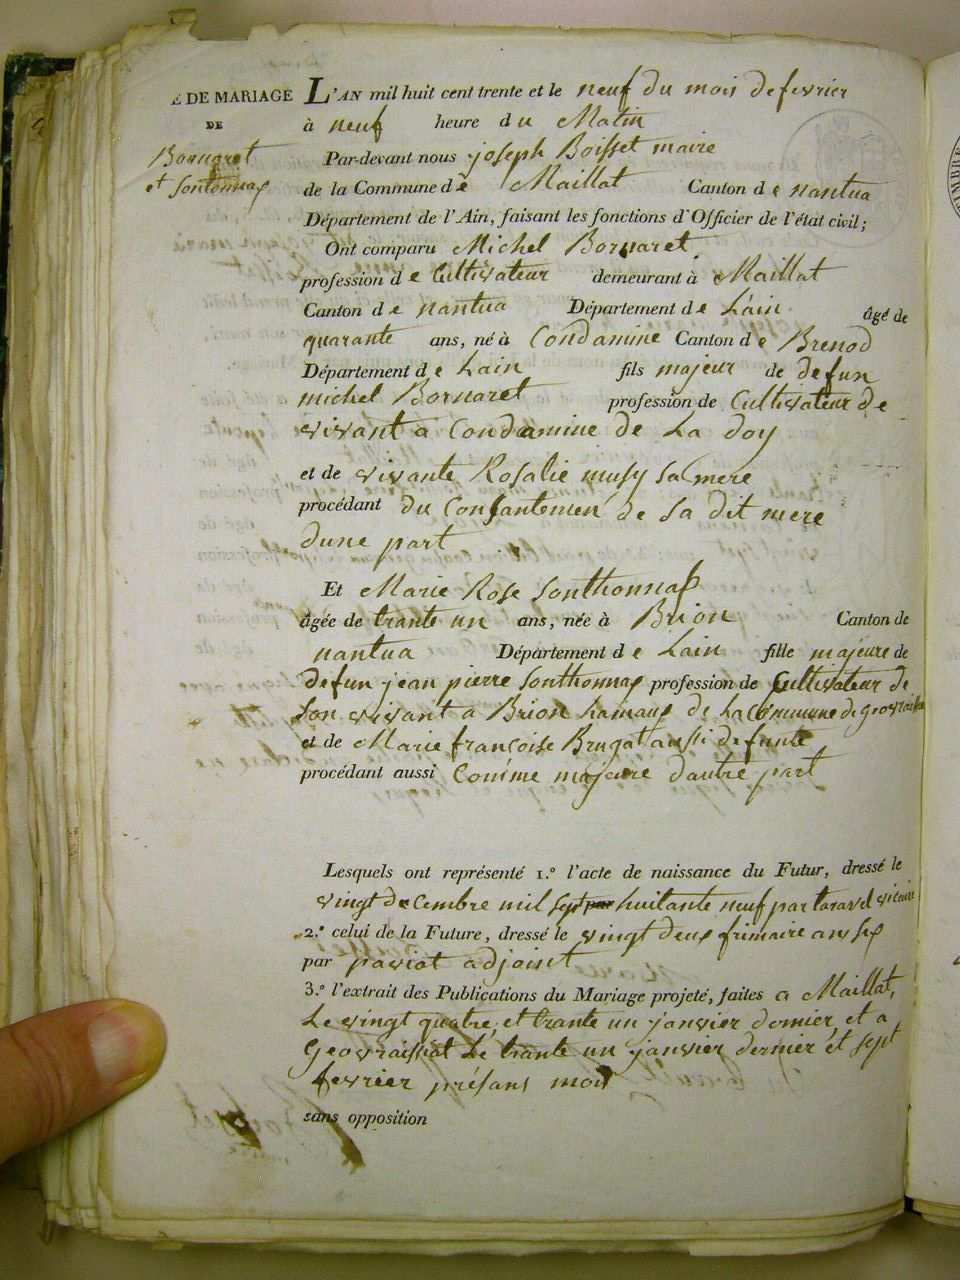 E DE MARIAGE
DE
Bornaret
et Sontonnax
L'AN mil huit cent trente et le neuf du mois de fevrier
à neuf heure du Matin
Par-devant nous joseph Boisset maire
de la Commune de Maillat Canton de nantua
Département de l'Ain, faisant les fonctions d'Officier de l'état civil;
Ont comparu Michel Bornaret
profession de Cultivateur demeurant à Maillat
Canton de nantua Département de Lain âgé de
quarante ans, né à Condamine Canton de Brenod
Département de Lain fils majeur de defun
michel Bornaret profession de Cultivateur de
vivant a Condamine de La doy
et de vivante Rosalie musy sa mere
procédant du Consantemen de sa dit mere
dune part
Et Marie Rose Sonthonnax
âgée de trante un ans, née à Brion Canton de
nantua Département de Lain fille majeure de
defun jean pierre Sonthonnax profession de Cultivateur de
son vivant a Brion hamaux de la Commune de Geovraissia
et de Marie françoise Brugat aussi defunte
procédant aussi Comme majeure dautre part
Lesquels ont représenté 1.º l'acte de naissance du Futur, dressé le
vingt decembre mil sept par huitante neuf par taravel vicaire
2.º celui de la Future, dressé le vingt deux frimaire an six
par paviot adjoint
3.º l'extrait des Publications du Mariage projeté, faites a Maillat,
Le vingt quatre, et trante un janvier dernier, et a
Geovraissiat Le trante un janvier dernier et sept
fevrier présans mois
sans opposition